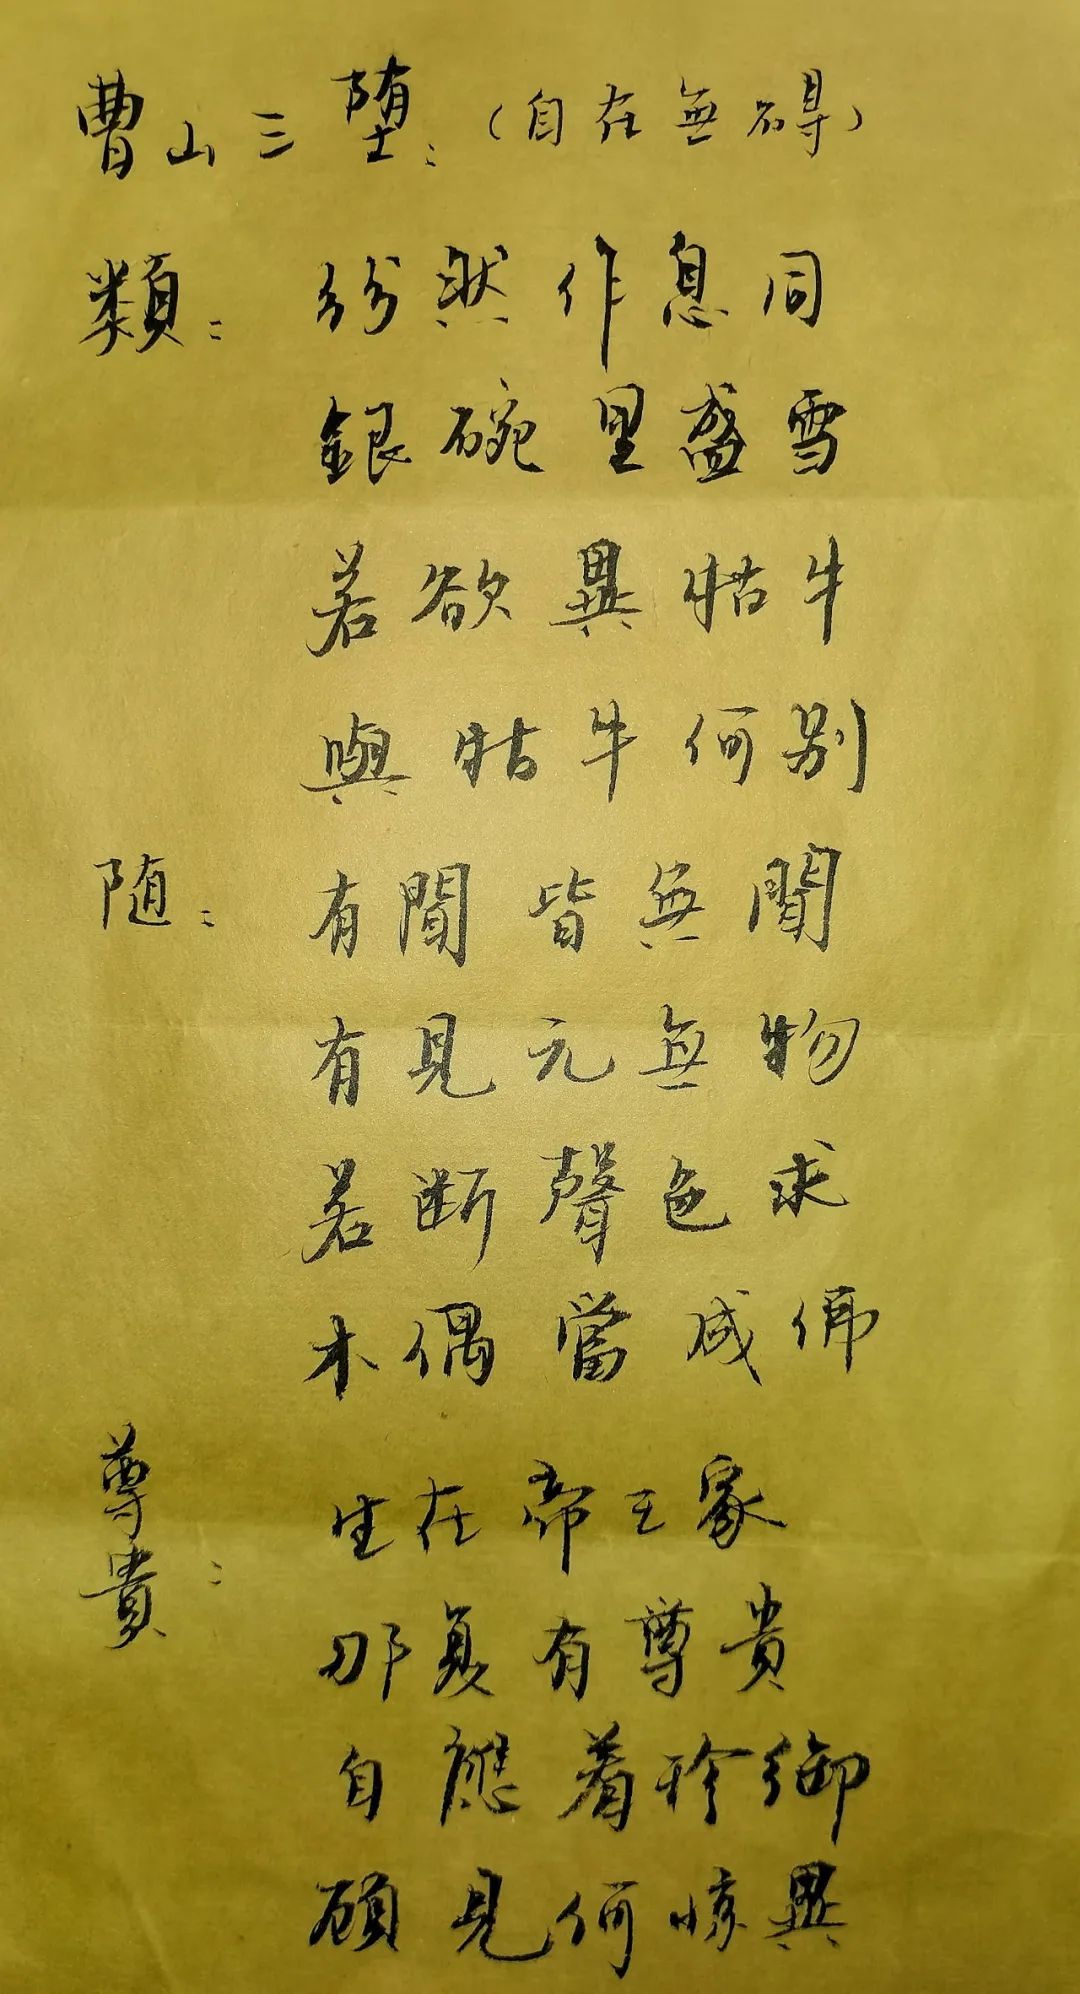 曹山三堕：（自在無碍）
類：紛然作息同
銀碗里盛雪
若欲異牯牛
與牯牛何别
随：有聞皆無聞
有見元無物
若断聲色求
木偶當成佛
尊貴：生在帝王家
那复有尊貴
自應着珍御
顧見何惊異